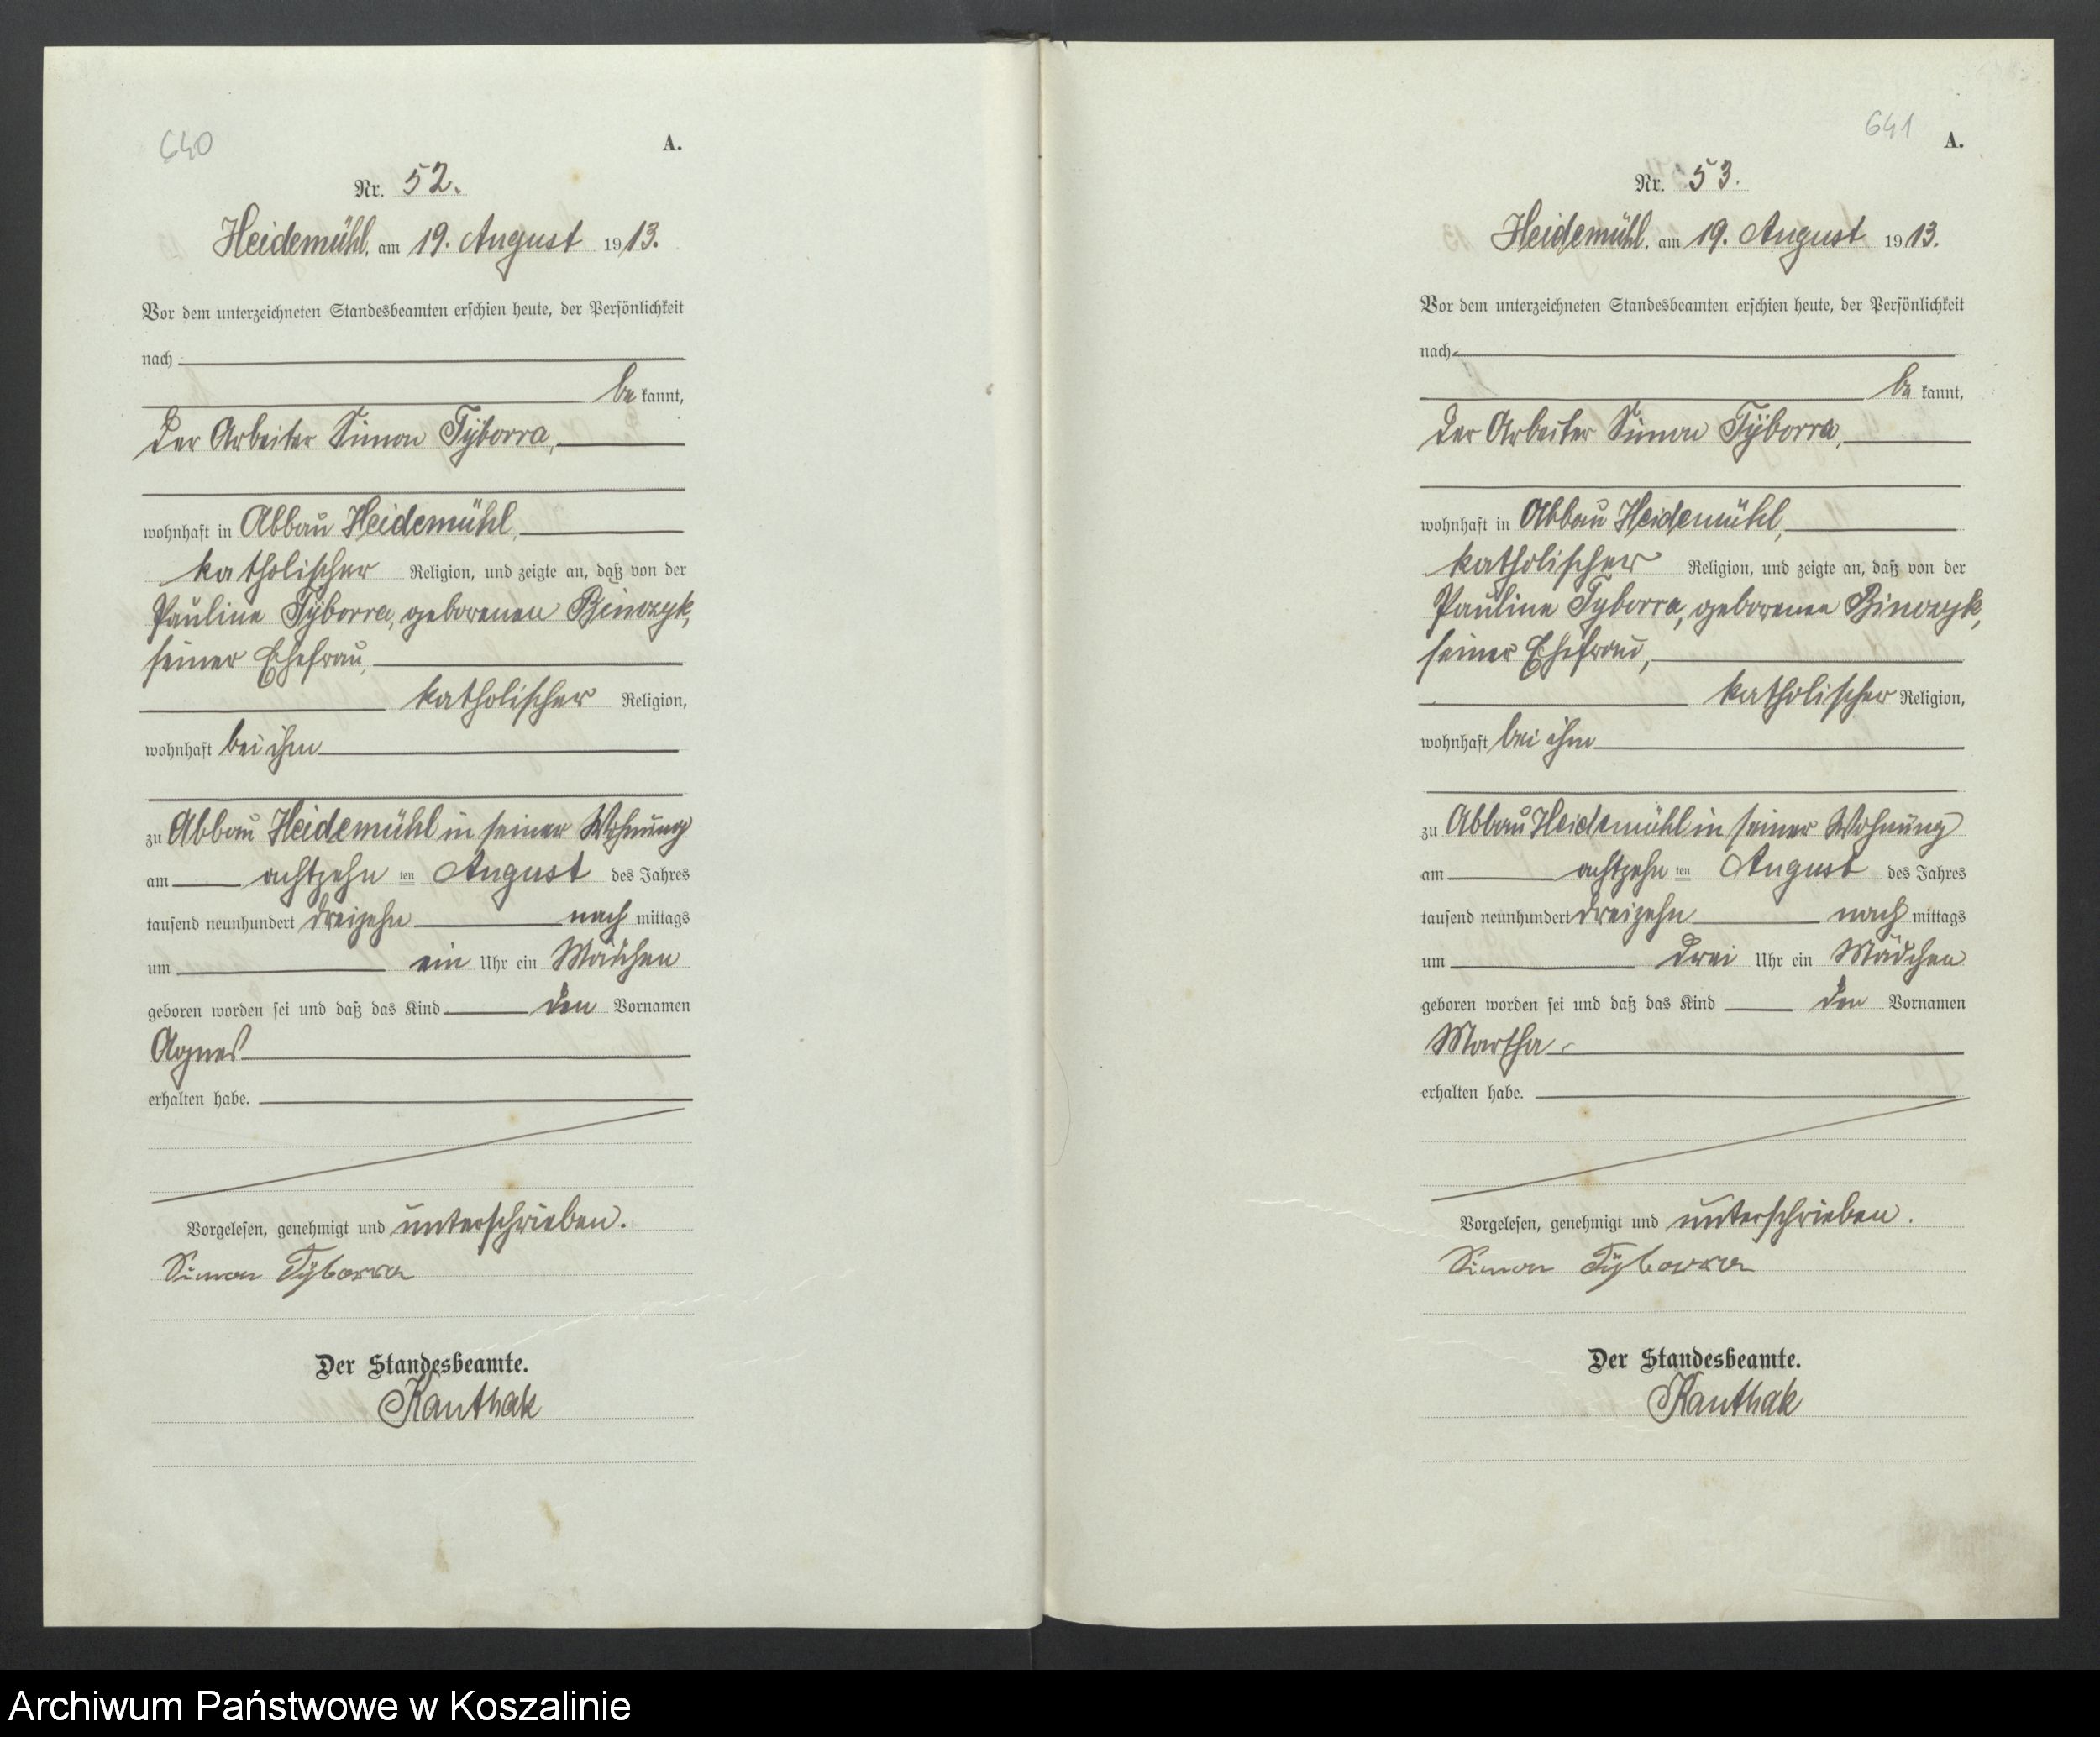 640
A.
Nr. 52.
Heidemühl, am 19. August 1913.
Vor dem unterzeichneten Standesbeamten erschien heute, der Persönlichkeit
nach
be kannt,
der Arbeiter Simon Tÿborra,
wohnhaft in Abbau Heidemühl,
katholischer Religion, und zeigte an, daß von der
Pauline Tÿborra, geborenen Binczyk,
seiner Ehefrau,
katholischer Religion,
wohnhaft bei ihm
zu Abbau Heidemühl in seiner Wohnung
am achtzehn ten August des Jahres
tausend neunhundert dreizehn nach mittags
um ein Uhr ein Mädchen
geboren worden sei und daß das Kind den Vornamen
Agnes
erhalten habe.
Vorgelesen, genehmigt und unterschrieben.
Simon Tÿborra
Der Standesbeamte.
Kanthak
641
A.
Nr. 53.
Heidemühl, am 19. August 1913.
Vor dem unterzeichneten Standesbeamten erschien heute, der Persönlichkeit
nach
be kannt,
der Arbeiter Simon Tÿborra,
wohnhaft in Abbau Heidemühl,
katholischer Religion, und zeigte an, daß von der
Pauline Tyborra, geborenen Binczyk,
seiner Ehefrau,
katholischer Religion,
wohnhaft bei ihm
zu Abbau Heidemühl in seiner Wohnung
am achtzehn ten August des Jahres
tausend neunhundert dreizehn nach mittags
um drei Uhr ein Mädchen
geboren worden sei und daß das Kind den Vornamen
Martha
erhalten habe.
Vorgelesen, genehmigt und unterschrieben.
Simon Tÿborra
Der Standesbeamte.
Kanthak
Archiwum Państwowe w Koszalinie